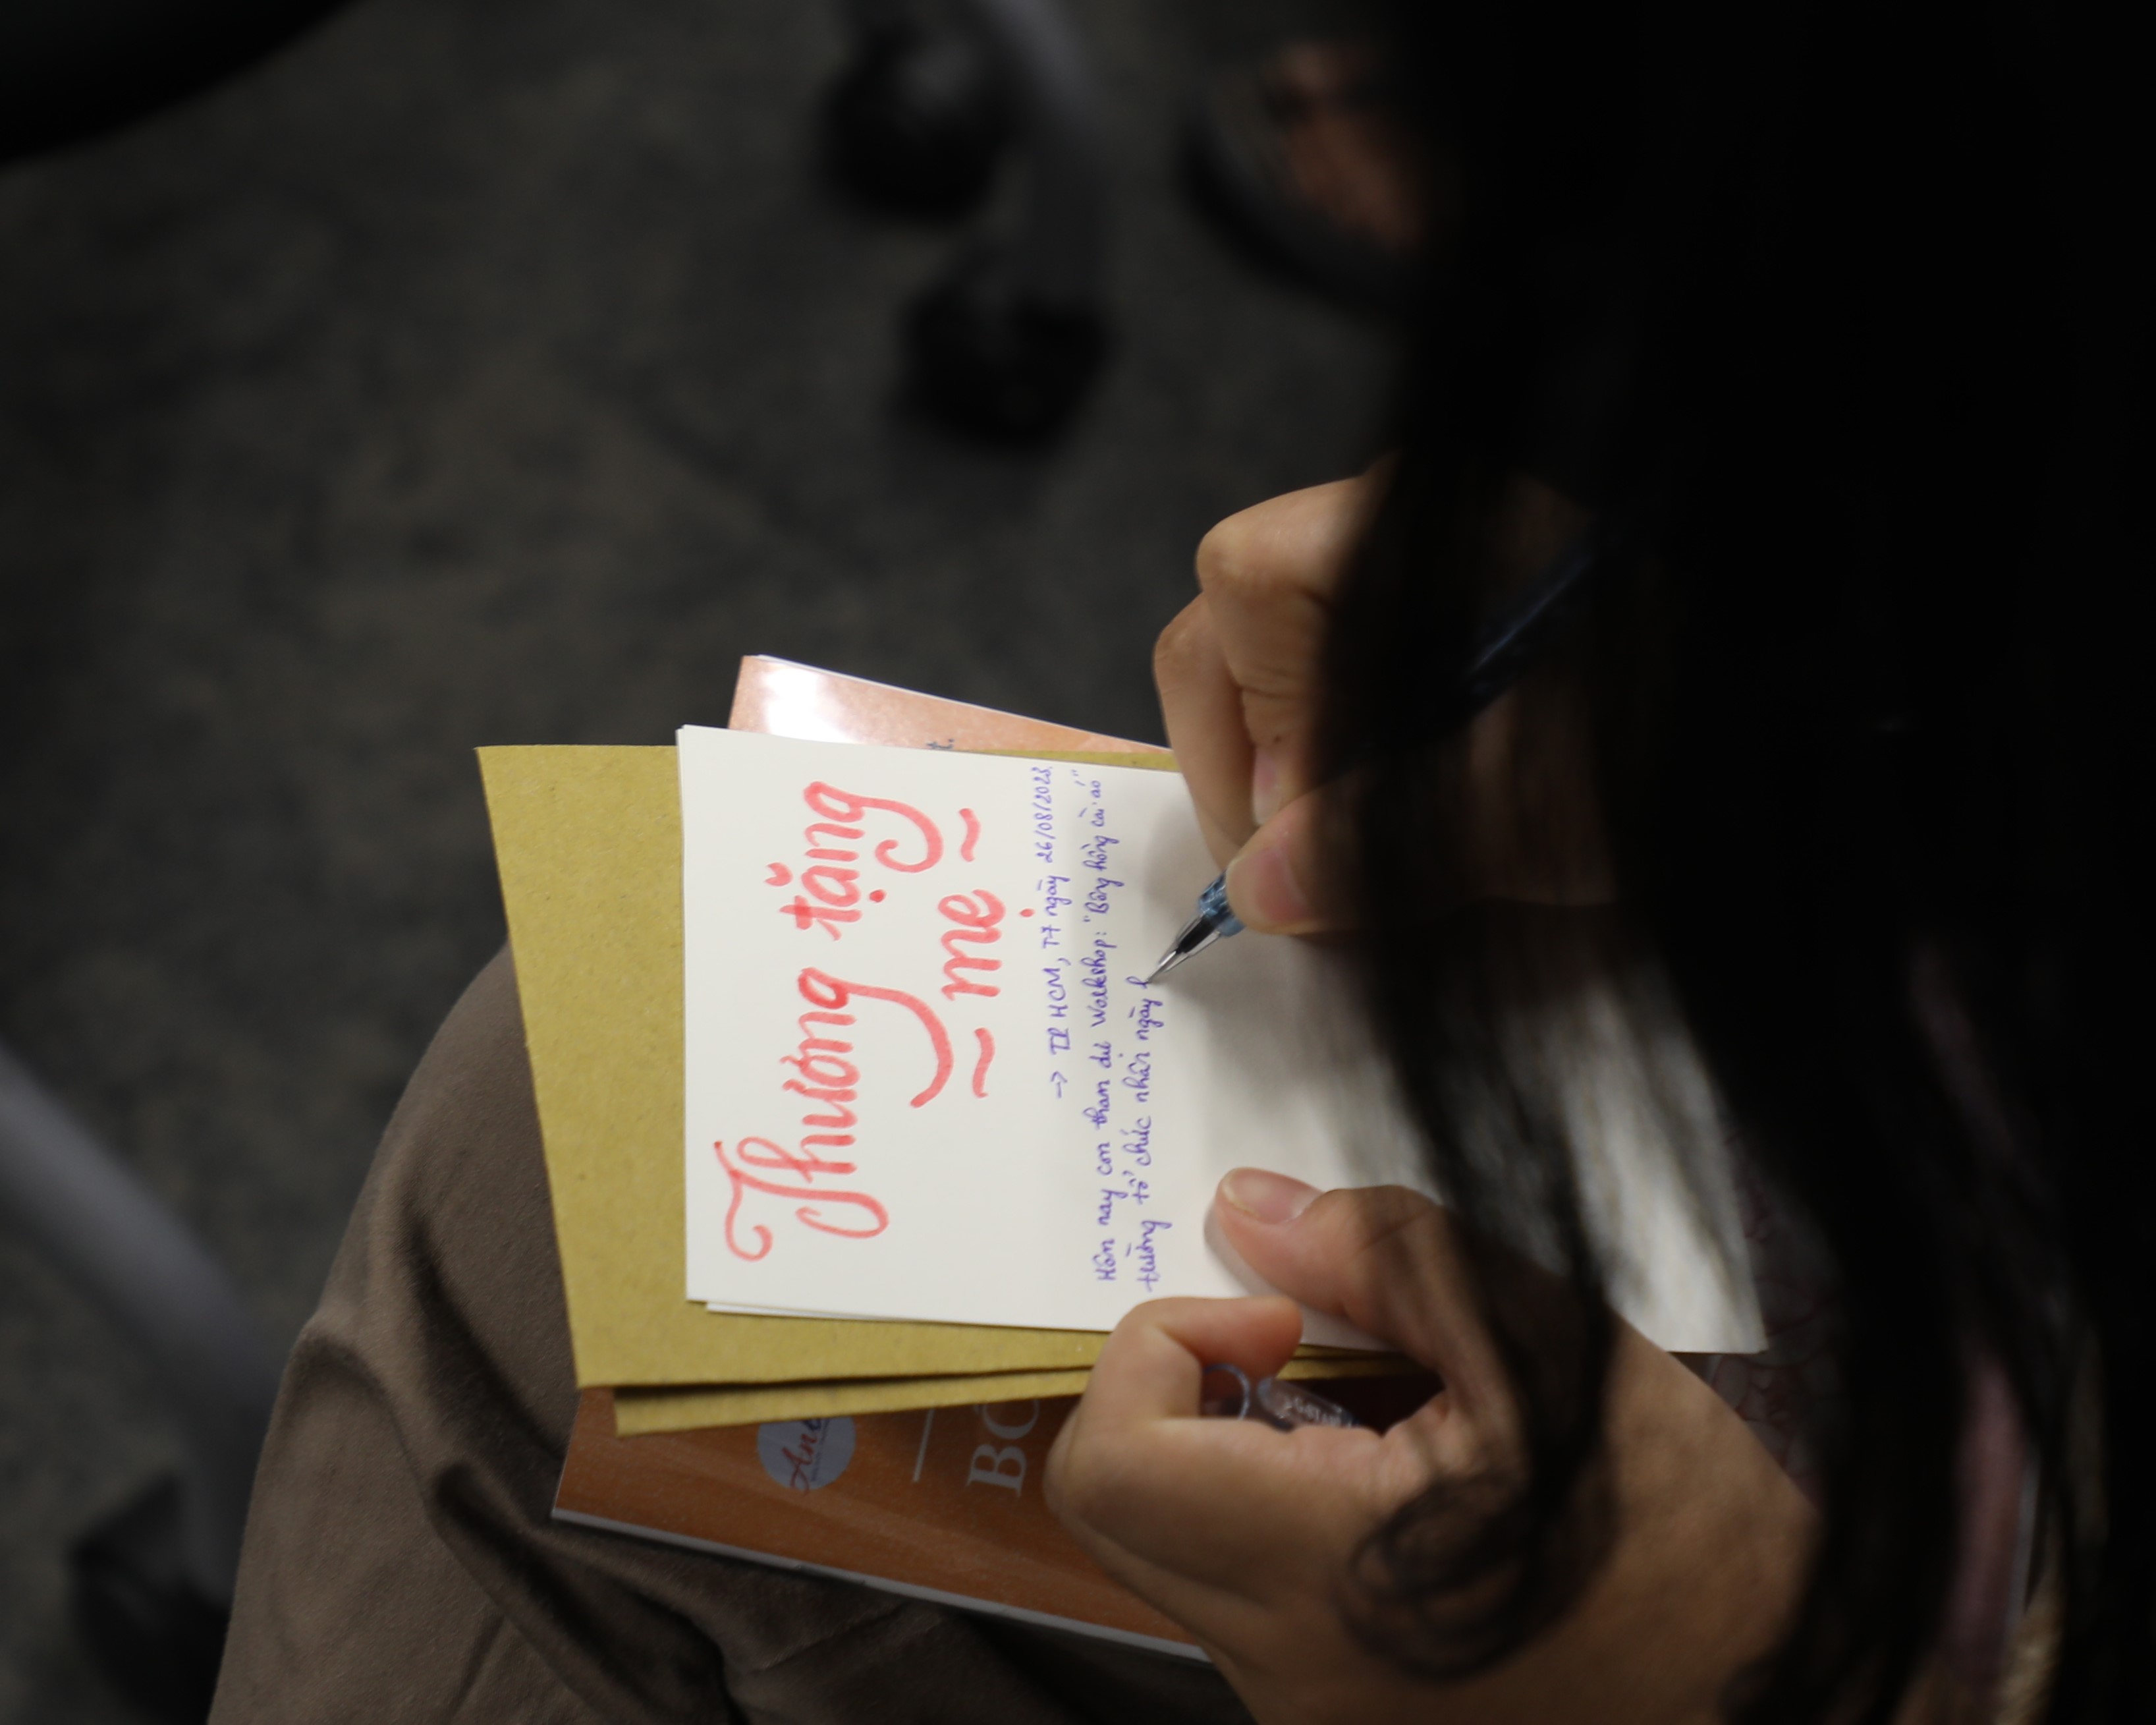 Thương tặng
~ mẹ ~
-> TP HCM, T7 ngày 26/08/2023.
Hôm nay con tham dự Workshop: "Bông hồng cài áo"
trường tổ chức nhân ngày
BO